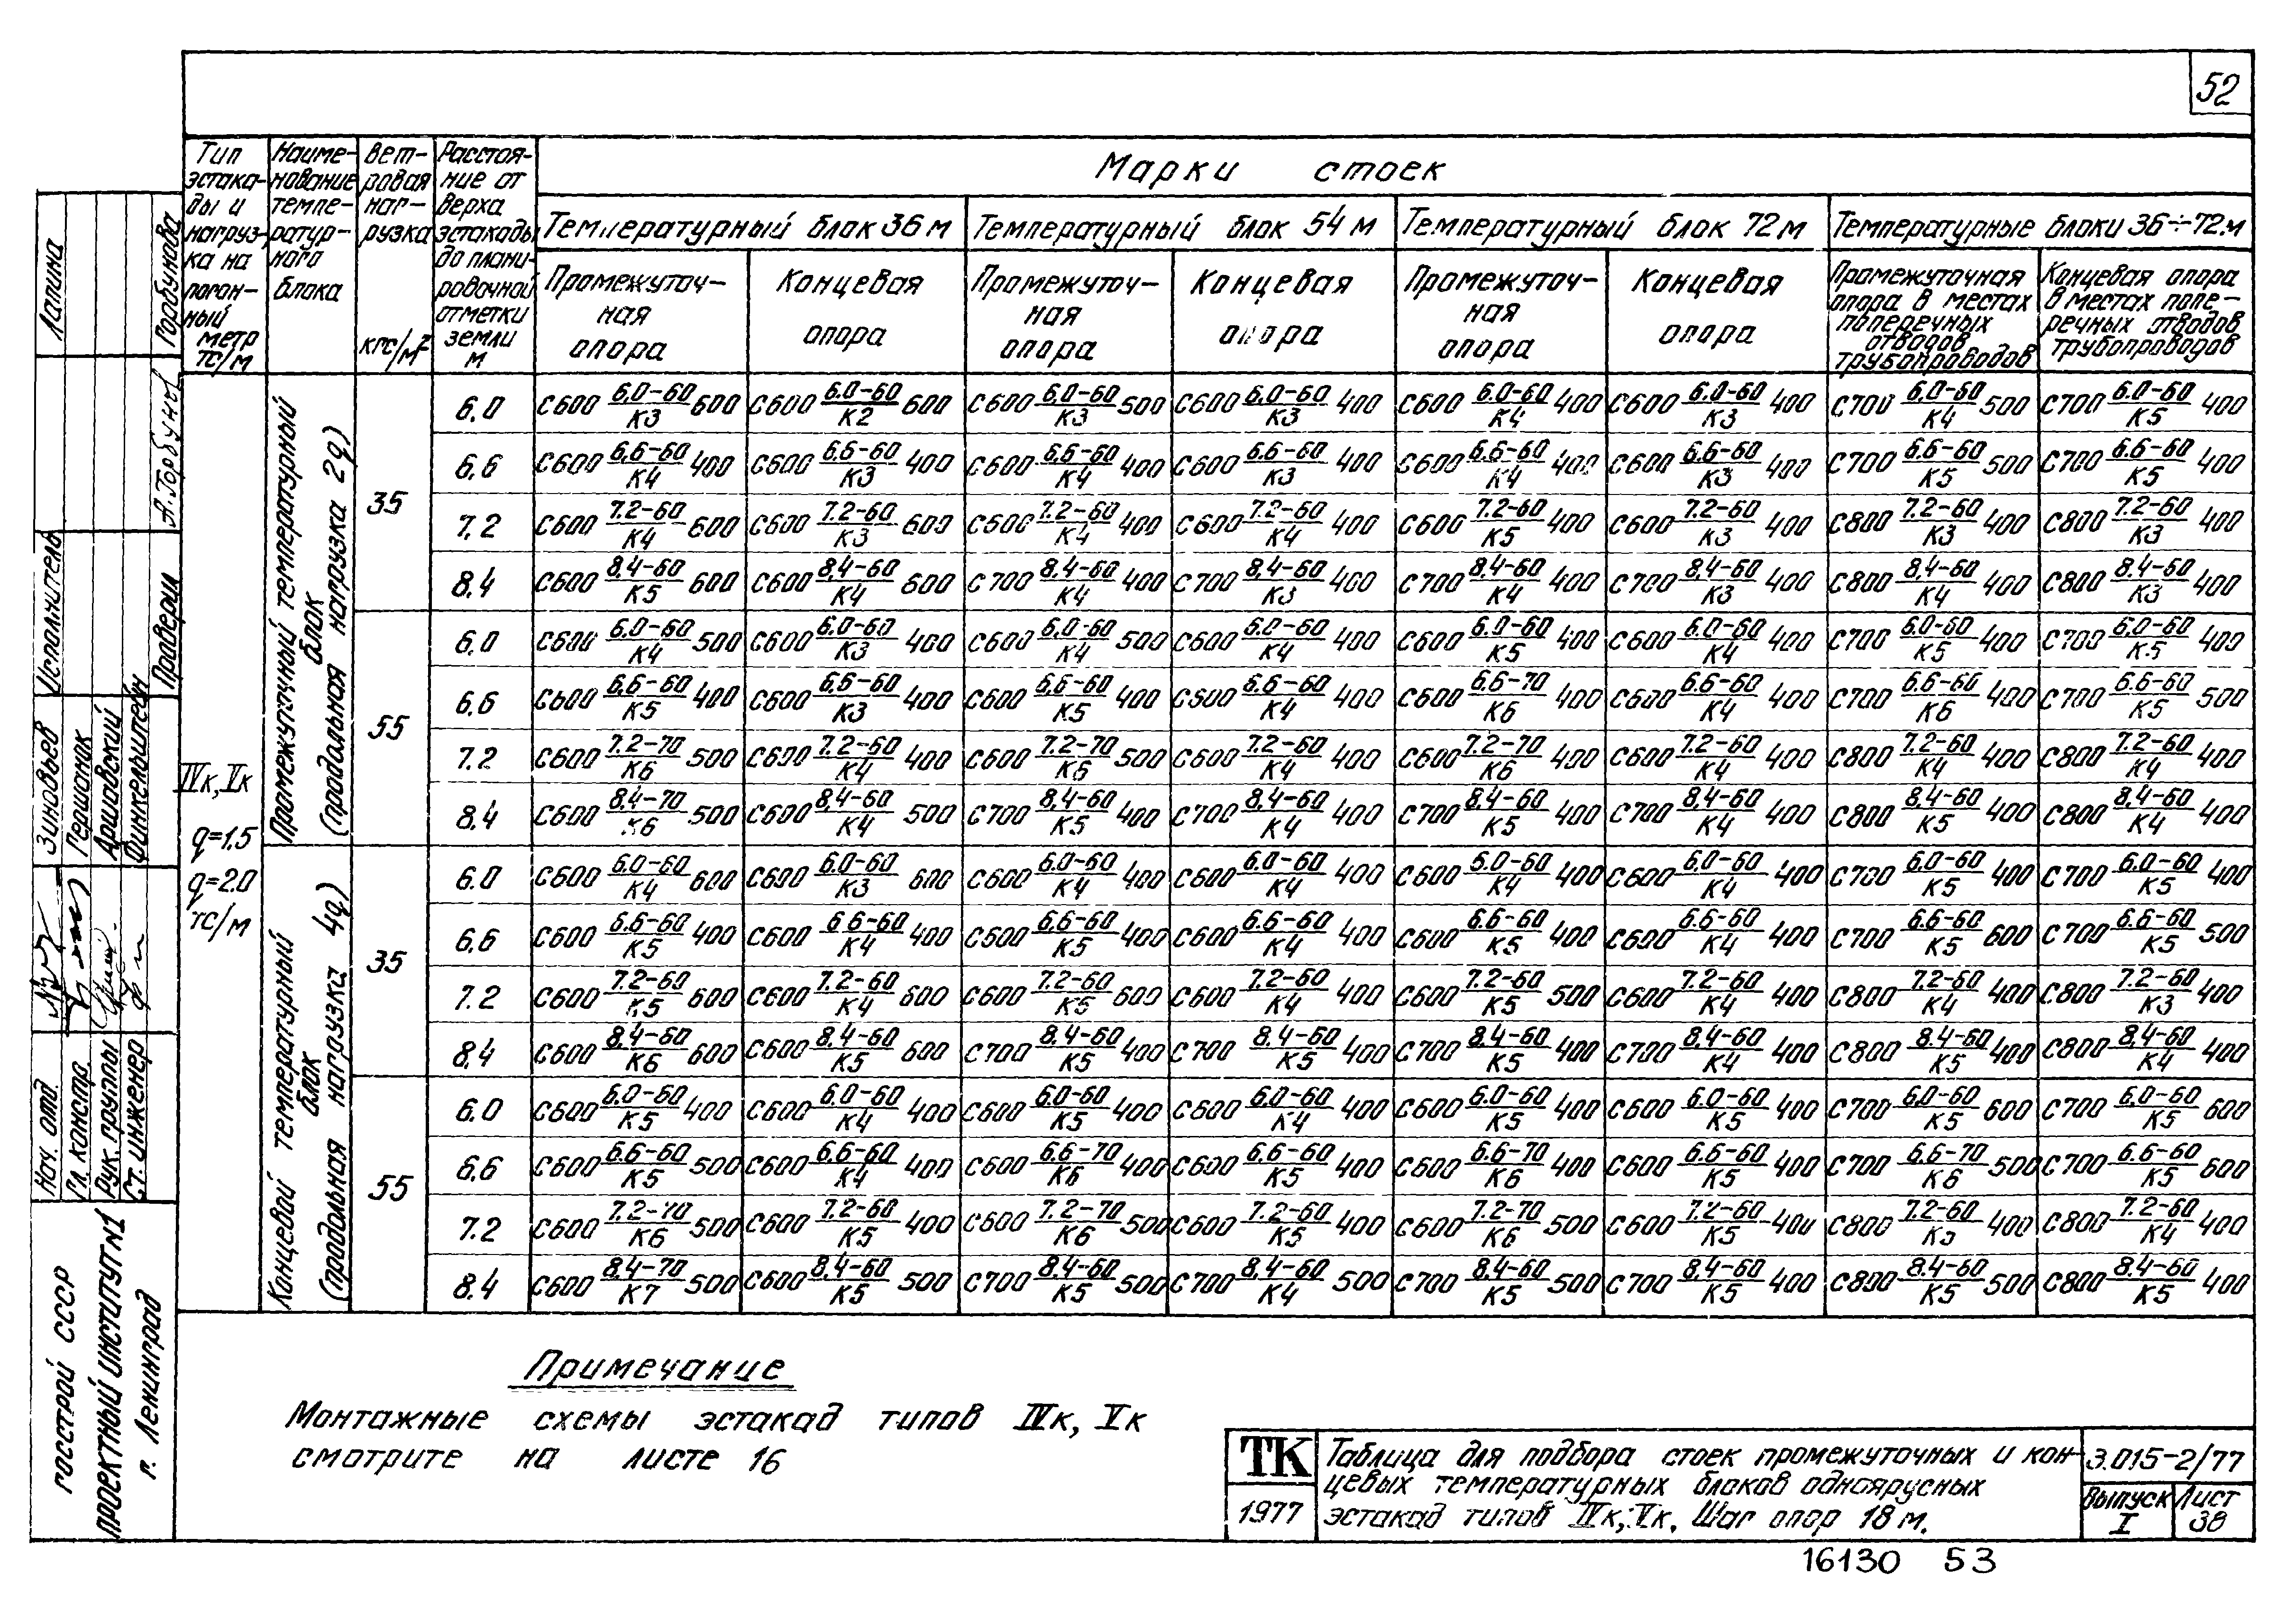 52
Тип эстака-ды и нагруз-ка на погон-ный метр тс/м
Наиме-нование темпе-ратур-ного блока
Вет-ровая наг-рузка кгс/м²
Расстоя-ние от верха эстакады до плани-ровочной отметки земли м
Марки стоек
Температурный блок 36 м
Температурный блок 54 м
Температурный блок 72 м
Температурные блоки 36÷72 м
Промежуточ-ная опора
Концевая опора
Промежуточ-ная опора
Концевая опора
Промежуточ-ная опора
Концевая опора
Промежуточная опора в местах поперечных отводов трубопроводов
Концевая опора в местах попе-речных отводов трубопроводов
IVк, Vк
q=1.5
q=2.0
тс/м
Промежуточный температурный блок (продольная нагрузка 2q)
35
6.0 С600 6.0-60/К3 600 С600 6.0-60/К2 600 С600 6.0-60/К3 500 С600 6.0-60/К3 400 С600 6.0-60/К4 400 С600 6.0-60/К3 400 С700 6.0-60/К4 500 С700 6.0-60/К5 400
6.6 С600 6.6-60/К4 400 С600 6.6-60/К3 400 С600 6.6-60/К4 400 С600 6.6-60/К3 400 С600 6.6-60/К4 400 С600 6.6-60/К3 400 С700 6.6-60/К5 500 С700 6.6-60/К5 400
7.2 С600 7.2-60/К4 600 С600 7.2-60/К3 600 С600 7.2-60/К4 400 С600 7.2-60/К4 400 С600 7.2-60/К5 400 С600 7.2-60/К3 400 С800 7.2-60/К3 400 С800 7.2-60/К3 400
8.4 С600 8.4-60/К5 600 С600 8.4-60/К4 600 С700 8.4-60/К4 400 С700 8.4-60/К3 400 С700 8.4-60/К4 400 С700 8.4-60/К3 400 С800 8.4-60/К4 400 С800 8.4-60/К3 400
55
6.0 С600 6.0-60/К4 500 С600 6.0-60/К3 400 С600 6.0-60/К4 500 С600 6.0-60/К4 400 С600 6.0-60/К5 400 С600 6.0-60/К4 400 С700 6.0-60/К5 400 С700 6.0-60/К5 400
6.6 С600 6.6-60/К5 400 С600 6.6-60/К3 400 С600 6.6-60/К5 400 С600 6.6-60/К4 400 С600 6.6-70/К6 400 С600 6.6-60/К4 400 С700 6.6-60/К6 400 С700 6.6-60/К5 500
7.2 С600 7.2-70/К6 500 С600 7.2-60/К4 400 С600 7.2-70/К6 500 С600 7.2-60/К4 400 С600 7.2-70/К6 400 С600 7.2-60/К4 400 С800 7.2-60/К4 400 С800 7.2-60/К4 400
8.4 С600 8.4-70/К6 500 С600 8.4-60/К4 500 С700 8.4-60/К5 400 С700 8.4-60/К4 400 С700 8.4-60/К5 400 С700 8.4-60/К4 400 С800 8.4-60/К5 400 С800 8.4-60/К4 400
Концевой температурный блок (продольная нагрузка 4q)
35
6.0 С600 6.0-60/К4 600 С600 6.0-60/К3 600 С600 6.0-60/К4 400 С600 6.0-60/К4 400 С600 6.0-60/К4 400 С600 6.0-60/К4 400 С700 6.0-60/К5 400 С700 6.0-60/К5 400
6.6 С600 6.6-60/К5 400 С600 6.6-60/К4 400 С600 6.6-60/К5 400 С600 6.6-60/К4 400 С600 6.6-60/К5 400 С600 6.6-60/К4 400 С700 6.6-60/К5 600 С700 6.6-60/К5 500
7.2 С600 7.2-60/К5 600 С600 7.2-60/К4 600 С600 7.2-60/К5 600 С600 7.2-60/К4 400 С600 7.2-60/К5 500 С600 7.2-60/К4 400 С800 7.2-60/К4 400 С800 7.2-60/К3 400
8.4 С600 8.4-60/К6 600 С600 8.4-60/К5 600 С700 8.4-60/К5 400 С700 8.4-60/К5 400 С700 8.4-60/К5 400 С700 8.4-60/К4 400 С800 8.4-60/К5 400 С800 8.4-60/К4 400
55
6.0 С600 6.0-60/К5 400 С600 6.0-60/К4 400 С600 6.0-60/К5 400 С600 6.0-60/К4 400 С600 6.0-60/К5 400 С600 6.0-60/К5 400 С700 6.0-60/К5 600 С700 6.0-60/К5 600
6.6 С600 6.6-60/К5 500 С600 6.6-60/К4 400 С600 6.6-70/К6 400 С600 6.6-60/К5 400 С600 6.6-70/К6 400 С600 6.6-60/К5 400 С700 6.6-70/К6 500 С700 6.6-60/К5 600
7.2 С600 7.2-70/К6 500 С600 7.2-60/К5 400 С600 7.2-70/К6 500 С600 7.2-60/К5 400 С600 7.2-70/К6 500 С600 7.2-60/К5 400 С800 7.2-60/К5 400 С800 7.2-60/К4 400
8.4 С600 8.4-70/К7 500 С600 8.4-60/К5 500 С700 8.4-60/К5 500 С700 8.4-60/К4 500 С700 8.4-60/К5 500 С700 8.4-60/К5 400 С800 8.4-60/К5 500 С800 8.4-60/К5 400
Примечание
Монтажные схемы эстакад типов IVк, Vк
смотрите на листе 16
ТК
1977
Таблица для подбора стоек промежуточных и кон-
цевых температурных блоков одноярусных
эстакад типов IVк; Vк. Шаг опор 18 м.
3.015-2/77
Выпуск I
Лист 38
16130 53
Лапина
Горбунова
А.Горбунов
Исполнитель
Проверил
Зиновьев
Гершанок
Аршавский
Финкельштейн
Нач. отд.
Гл. констр.
Рук. группы
Ст. инженер
Госстрой СССР
Проектный институт №1
г. Ленинград